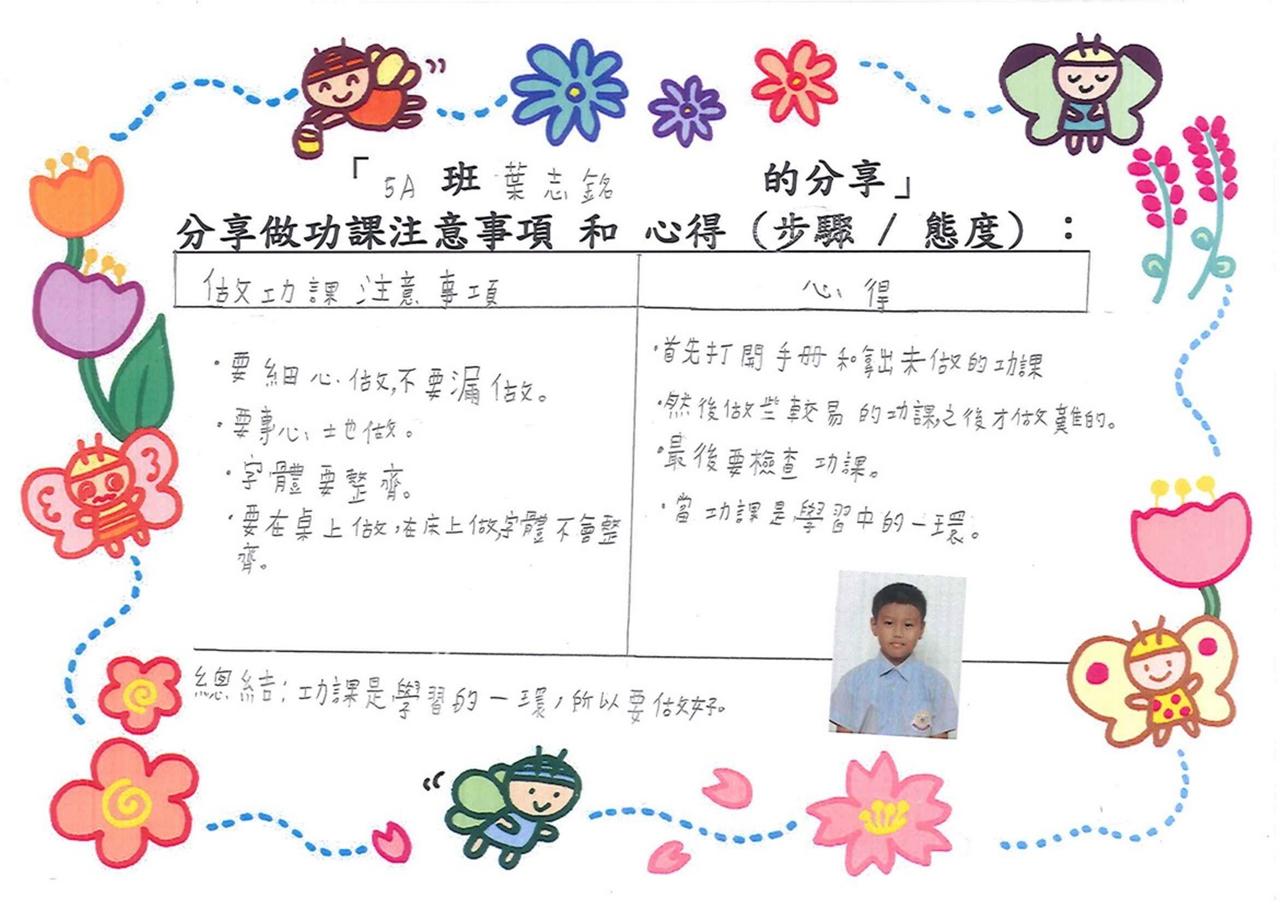 「5A 班 葉志銘 的分享」
分享做功課注意事項 和 心得（步驟 / 態度）：
做功課注意事項
心得
·要細心做,不要漏做。
·要專心地做。
·字體要整齊。
·要在桌上做,在床上做,字體不會整
齊。
·首先打開手冊和拿出未做的功課
·然後做些較易的功課,之後才做難的。
·最後要檢查功課。
·當功課是學習中的一環。
總結:功課是學習的一環,所以要做好。